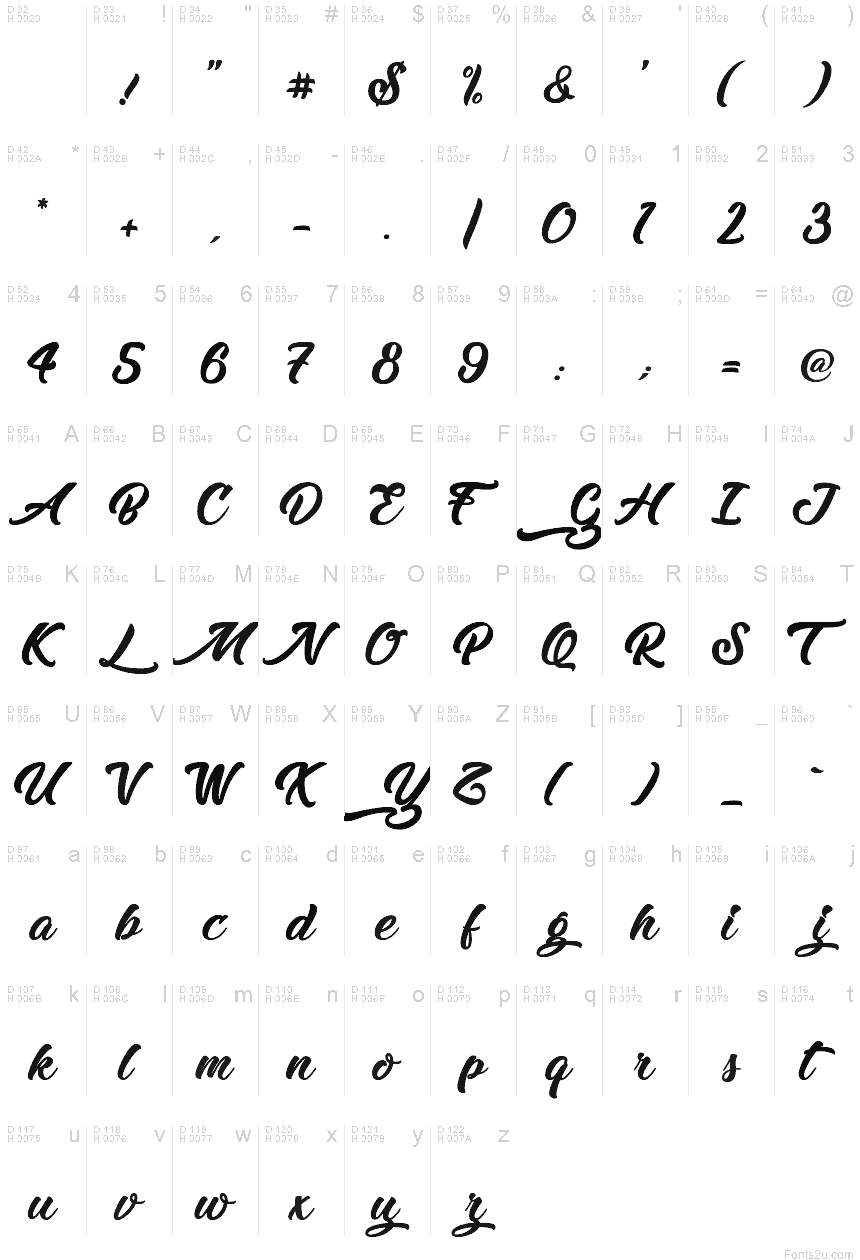 D 32 D 33 ! D 34 " D 35 # D 36 $ D 37 % D 38 & D 39 ' D 40 ( D 41 )
H 0020 H 0021 H 0022 H 0023 H 0024 H 0025 H 0026 H 0027 H 0028 H 0029
! " # $ % & ' ( )
D 42 * D 43 + D 44 , D 45 - D 46 . D 47 / D 48 0 D 49 1 D 50 2 D 51 3
H 002A H 002B H 002C H 002D H 002E H 002F H 0030 H 0031 H 0032 H 0033
* + , - . / 0 1 2 3
D 52 4 D 53 5 D 54 6 D 55 7 D 56 8 D 57 9 D 58 : D 59 ; D 61 = D 64 @
H 0034 H 0035 H 0036 H 0037 H 0038 H 0039 H 003A H 003B H 003D H 0040
4 5 6 7 8 9 : ; = @
D 65 A D 66 B D 67 C D 68 D D 69 E D 70 F D 71 G D 72 H D 73 I D 74 J
H 0041 H 0042 H 0043 H 0044 H 0045 H 0046 H 0047 H 0048 H 0049 H 004A
A B C D E F G H I J
D 75 K D 76 L D 77 M D 78 N D 79 O D 80 P D 81 Q D 82 R D 83 S D 84 T
H 004B H 004C H 004D H 004E H 004F H 0050 H 0051 H 0052 H 0053 H 0054
K L M N O P Q R S T
D 85 U D 86 V D 87 W D 88 X D 89 Y D 90 Z D 91 [ D 93 ] D 95 _ D 96 `
H 0055 H 0056 H 0057 H 0058 H 0059 H 005A H 005B H 005D H 005F H 0060
U V W X Y Z ( ) _ `
D 97 a D 98 b D 99 c D 100 d D 101 e D 102 f D 103 g D 104 h D 105 i D 106 j
H 0061 H 0062 H 0063 H 0064 H 0065 H 0066 H 0067 H 0068 H 0069 H 006A
a b c d e f g h i j
D 107 k D 108 l D 109 m D 110 n D 111 o D 112 p D 113 q D 114 r D 115 s D 116 t
H 006B H 006C H 006D H 006E H 006F H 0070 H 0071 H 0072 H 0073 H 0074
k l m n o p q r s t
D 117 u D 118 v D 119 w D 120 x D 121 y D 122 z
H 0075 H 0076 H 0077 H 0078 H 0079 H 007A
u v w x y z
Fonts2u.com